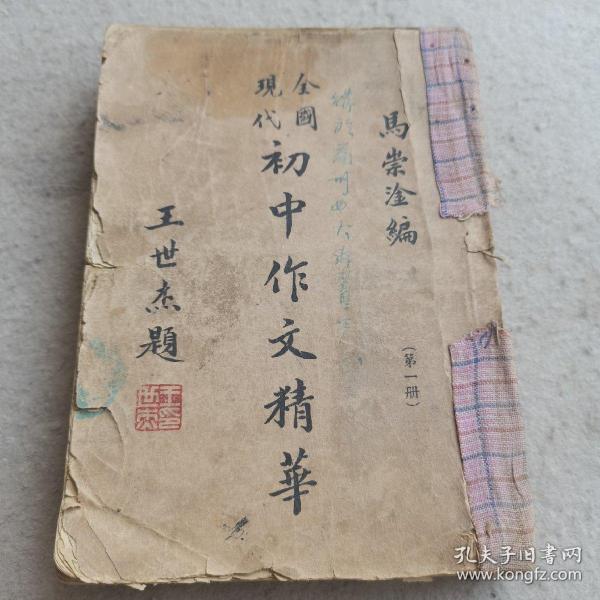 馬崇淦編
(第一册)
全國
現代
初中作文精華
王世杰題
孔夫子旧书网
www.kongfz.com